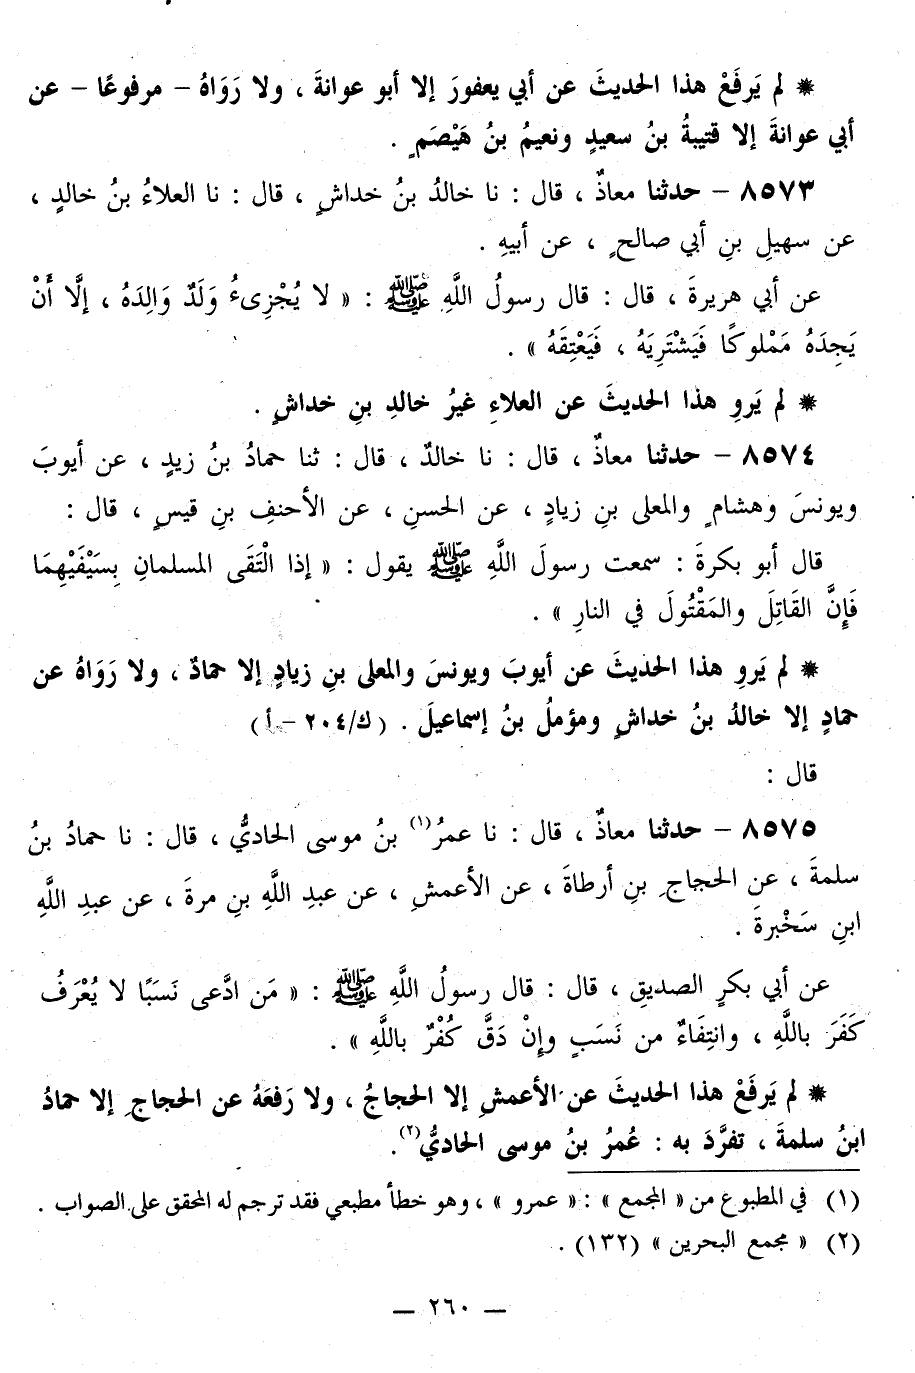 * لم يَرفَعْ هذا الحديثَ عن أبي يعفورَ إلا أبو عوانةَ ، ولا رَوَاهُ – مرفوعًا – عن
أبي عوانةَ إلا قتيبةُ بنُ سعيدٍ ونعيمُ بنُ هَيْصَمٍ .
٨٥٧٣ – حدثنا معاذٌ ، قال : نا خالدُ بنُ خداشٍ ، قال : نا العلاءُ بنُ خالدٍ ،
عن سهيلِ بنِ أبي صالحٍ ، عن أبيهِ .
عن أبي هريرةَ ، قال : قال رسولُ اللَّهِ ﷺ : « لا يُجْزِىءُ وَلَدٌ وَالِدَهُ ، إلَّا أَنْ
يَجِدَهُ مَمْلوكًا فَيَشْتَرِيَهُ ، فَيَعْتِقَهُ » .
* لم يَروِ هذا الحديثَ عن العلاءِ غيرُ خالدِ بنِ خداشٍ .
٨٥٧٤ – حدثنا معاذٌ ، قال : نا خالدٌ ، قال : ثنا حمادُ بنُ زيدٍ ، عن أيوبَ
ويونسَ وهشامٍ والمعلى بنِ زيادٍ ، عن الحسنِ ، عن الأحنفِ بنِ قيسٍ ، قال :
قال أبو بكرةَ : سمعت رسولَ اللَّهِ ﷺ يقول : « إذا الْتَقَى المسلمانِ بِسَيْفَيْهِمَا
فَإِنَّ القَاتِلَ والمَقْتُولَ في النارِ » .
* لم يَروِ هذا الحديثَ عن أيوبَ ويونسَ والمعلى بنِ زيادٍ إلا حمادٌ ، ولا رَوَاهُ عن
حمادٍ إلا خالدُ بنُ خداشٍ ومؤملُ بنُ إسماعيلَ . ( ك/٢٠٤ – أ )
قال :
٨٥٧٥ – حدثنا معاذٌ ، قال : نا عمرُ(١) بنُ موسى الحاديُّ ، قال : نا حمادُ بنُ
سلمةَ ، عن الحجاجِ بنِ أرطاةَ ، عن الأعمشِ ، عن عبدِ اللَّهِ بنِ مرةَ ، عن عبدِ اللَّهِ
ابنِ سَخْبرةَ .
عن أبي بكرٍ الصديقِ ، قال : قال رسولُ اللَّهِ ﷺ : « مَن ادَّعى نَسَبًا لا يُعْرَفُ
كَفَرَ باللَّهِ ، وانتِفَاءٌ من نَسَبٍ وإِنْ دَقَّ كُفْرٌ باللَّهِ » .
* لم يَرفَعْ هذا الحديثَ عن الأعمشِ إلا الحجاجُ ، ولا رَفعَهُ عن الحجاجِ إلا حمادُ
ابنُ سلمةَ ، تفرَّدَ به : عُمرُ بنُ موسى الحاديُّ(٢) .
(١) في المطبوع من « المجمع » : « عمرو » ، وهو خطأ مطبعي فقد ترجم له المحقق على الصواب .
(٢) « مجمع البحرين » (١٣٢) .
— ٢٦٠ —